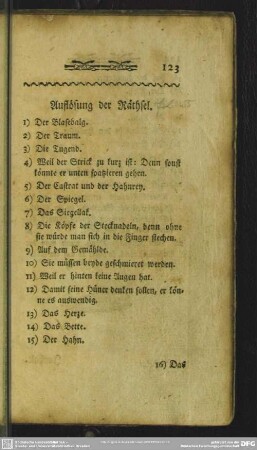 123
Auflösung der Räthsel.
1) Der Blasebalg.
2) Der Traum.
3) Die Tugend.
4) Weil der Strick zu kurz ist: Denn sonst
könnte er unten spatzieren gehen.
5) Der Castrat und der Hahnrey.
6) Der Spiegel.
7) Das Siegellak.
8) Die Köpfe der Stecknadeln, denn ohne
sie würde man sich in die Finger stechen.
9) Auf dem Gemählde.
10) Sie müssen beyde geschmieret werden.
11) Weil er hinten keine Augen hat.
12) Damit seine Hüner denken sollen, er kön-
ne es auswendig.
13) Das Herze.
14) Das Bette.
15) Der Hahn.
16) Das